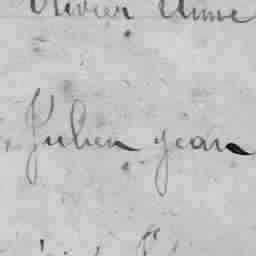 Olivier Anne
Julien jean